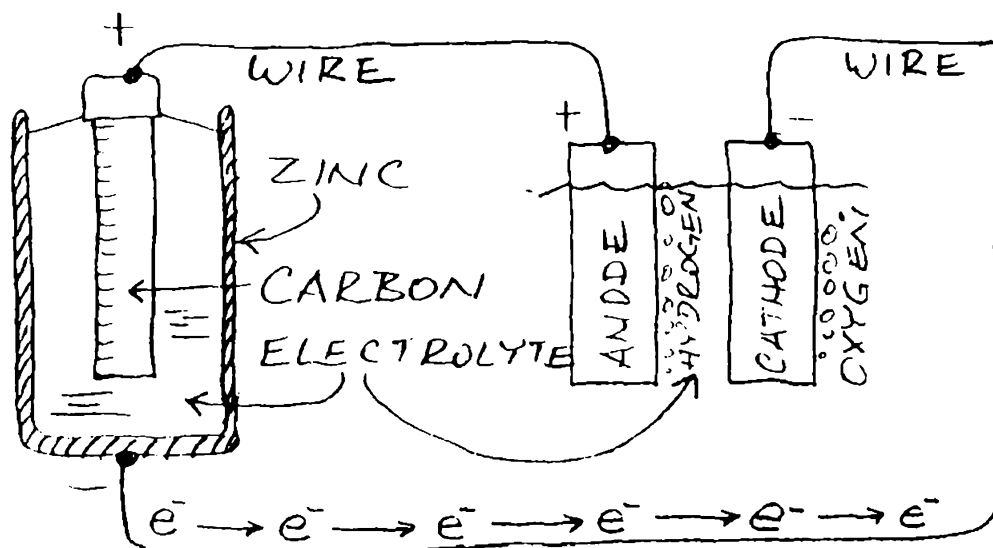 +
WIRE
WIRE
+
-
ZINC
CARBON
ELECTROLYTE
ANODE
HYDROGEN
CATHODE
OXYGEN
-
e⁻ → e⁻ → e⁻ → e⁻ → e⁻ → e⁻